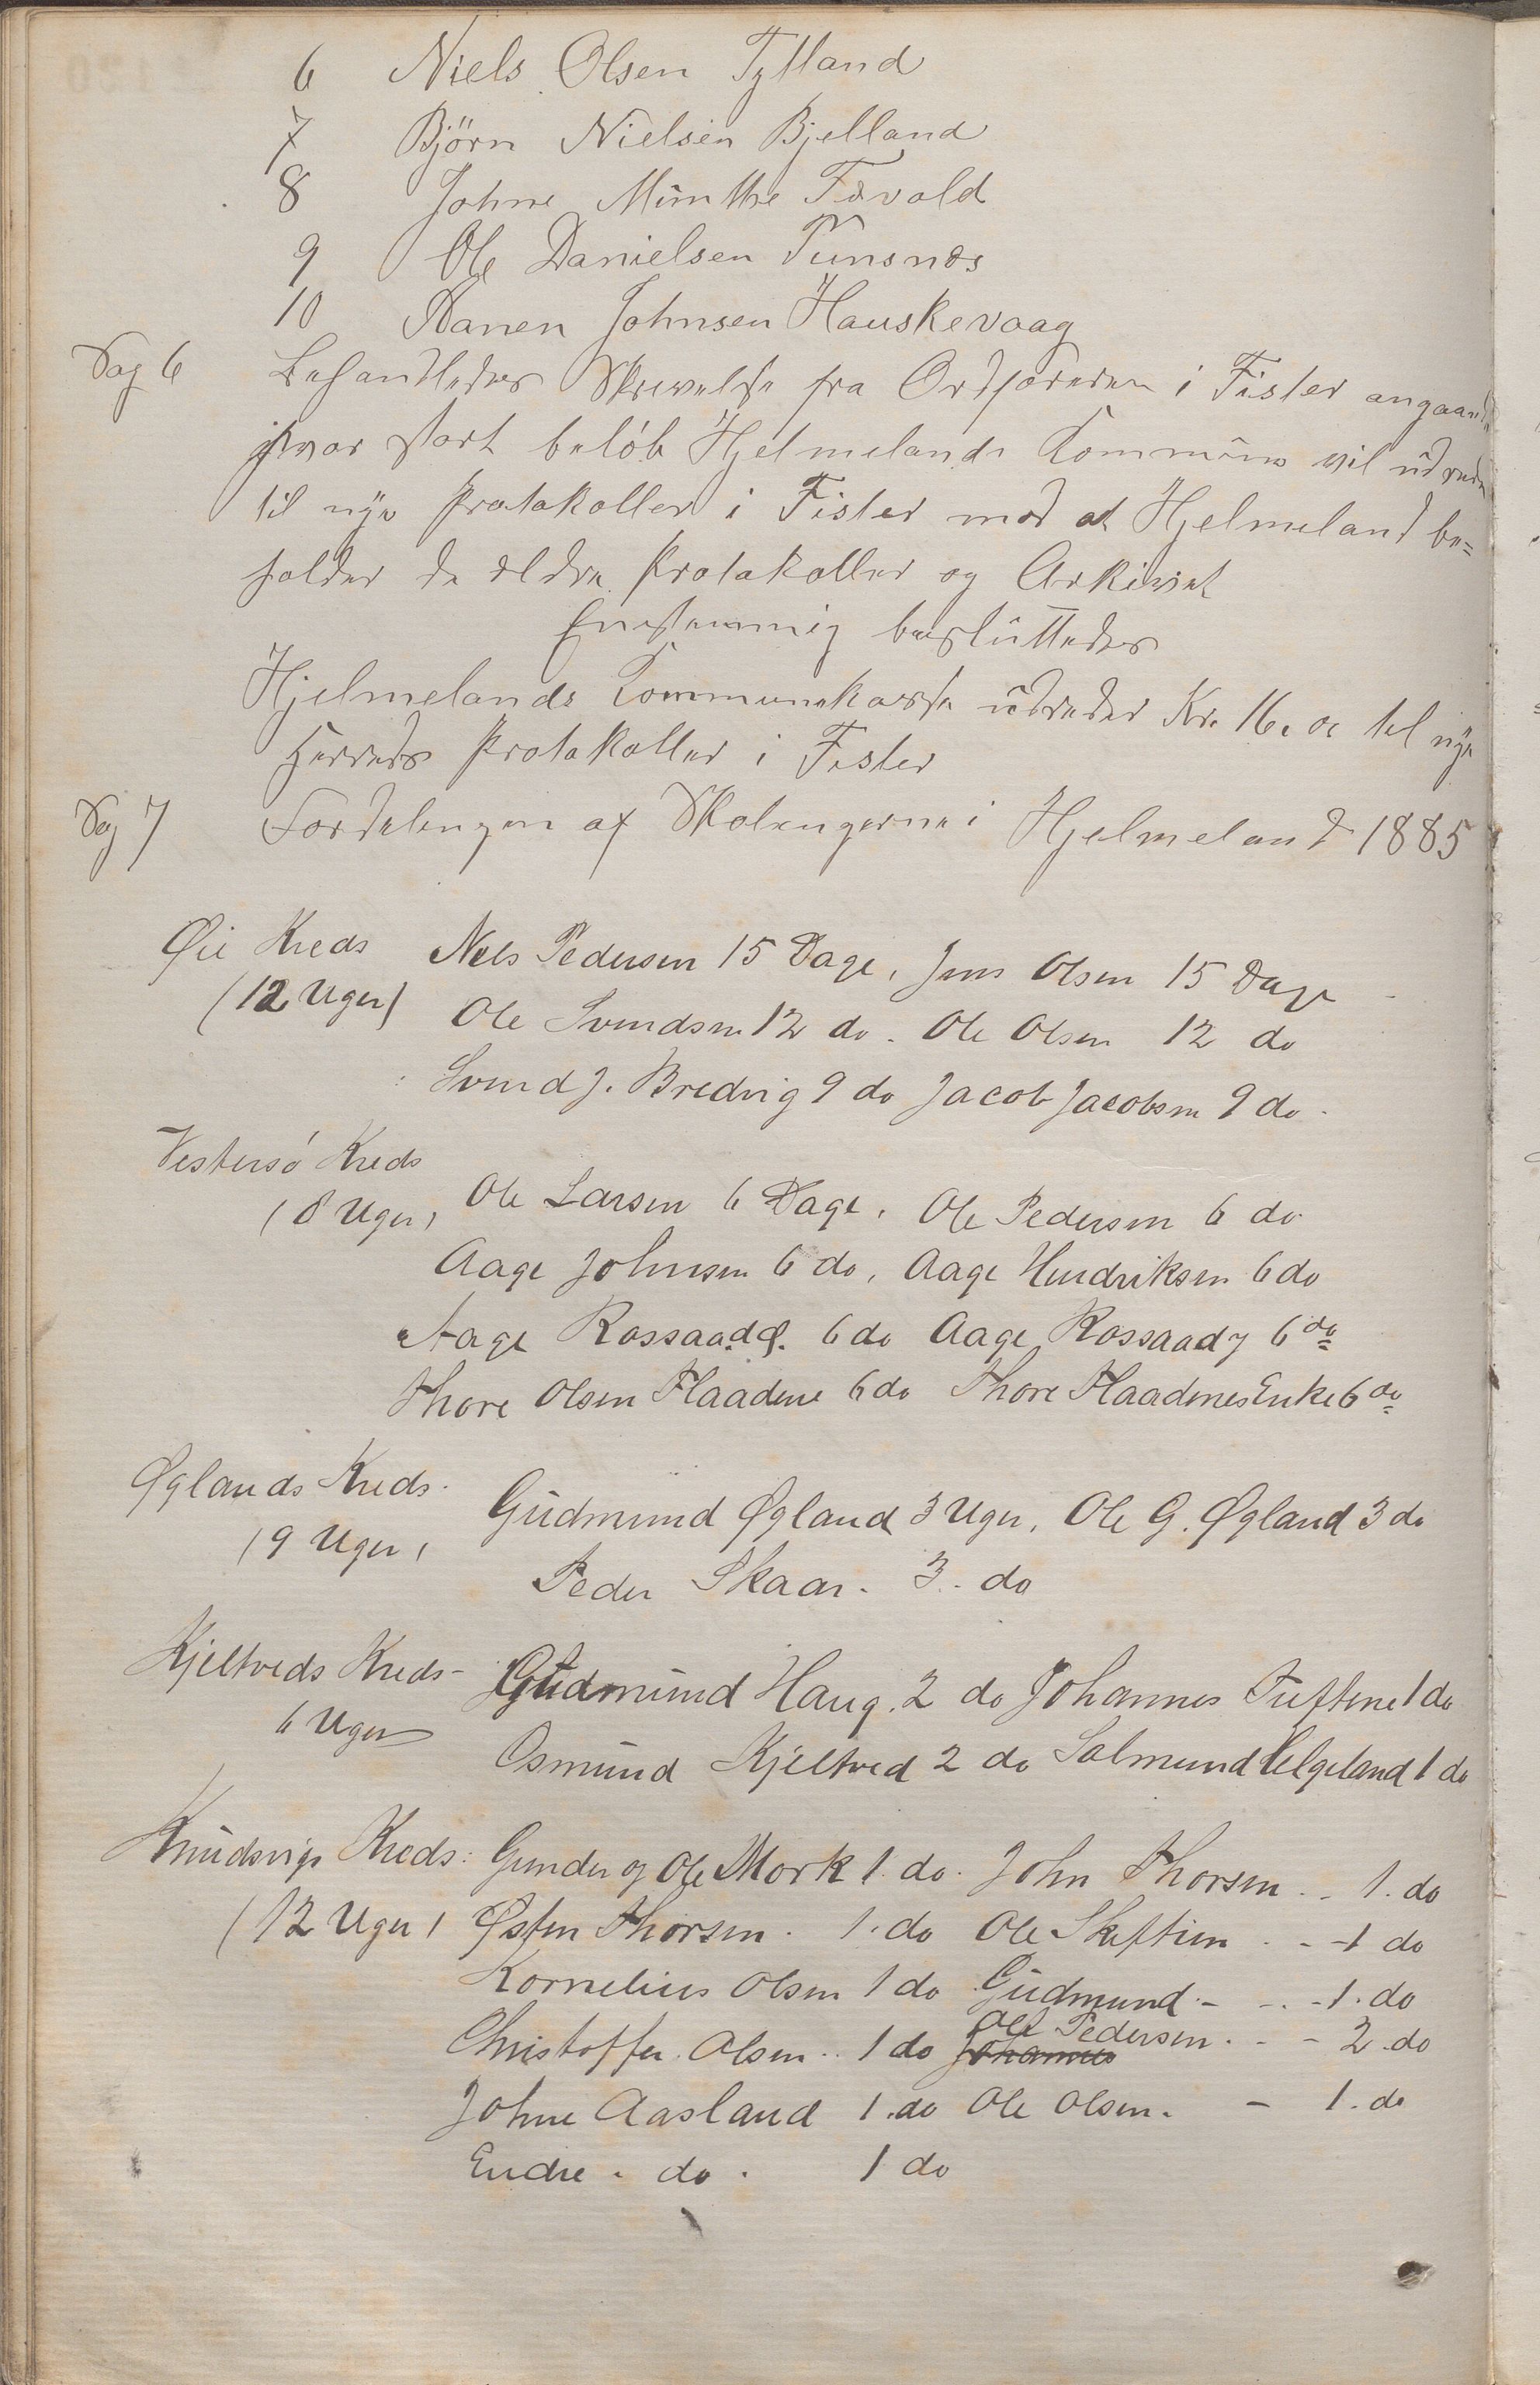 6 Niels Olsen Tytland
7 Björn Nielsen Bjelland
8 Johne Munthe Tøvold
9 Ole Danielsen Tunsnæs
10 Ranen Johnsen Hauskevaag
Sag 6 Behandledes Skrivelse fra Ordføreren i Fister angaaende
hvor stort beløb Hjelmelands Kommune vil udrede
til nye Protokoller i Fister mod at Hjelmeland be=
holder de ældre Protokoller og Arkivet
Enstemmig besluttedes
Hjelmelands Kommunekasse udreder Kr. 16.00 til nye
Herreds Protokoller i Fister
Sag 7 Fordelingen af Skoleugerne i Hjelmeland 1885
Øie Kreds Nels Pedersen 15 Dage, Jens Olsen 15 Dage
(12 Uger) Ole Svendsen 12 do. Ole Olsen 12 do
Svend J. Bredvig 9 do Jacob Jacobsen 9 do.
Vestersø Kreds
(8 Uger) Ole Larsen 6 Dage, Ole Pedersen 6 do
Aage Johnsen 6 do, Aage Hendriksen 6 do
Aage Rossaadø. 6 do Aage Rossaady 6 do
Thore Olsen Flaadene 6 do Thore Flaadenes Enke 6 do
Øglands Kreds. Gudmund Øgland 3 Uger, Ole G. Øgland 3 do
(9 Uger) Peder Skaar. 3. do
Kjeltveds Kreds- Gudmund Haug. 2 do Johannes Tuftene 1 do
6 Uger Osmund Kjeltved 2 do Salmund Helgeland 1 do
Knudsvigs Kreds: Gunder og Ole Mork 1. do. John Thorsen .. 1. do
(12 Uger) Østen Thorsen. 1. do Ole Skeftien . - - 1 do
Kornelius Olsen 1 do Gudmund. - - . - 1. do
Christoffer Olsen. 1 do Johannes Ole Pedersen. - - 2. do
Johne Aasland 1. do Ole Olsen. - 1. do
Endre. do. 1 do